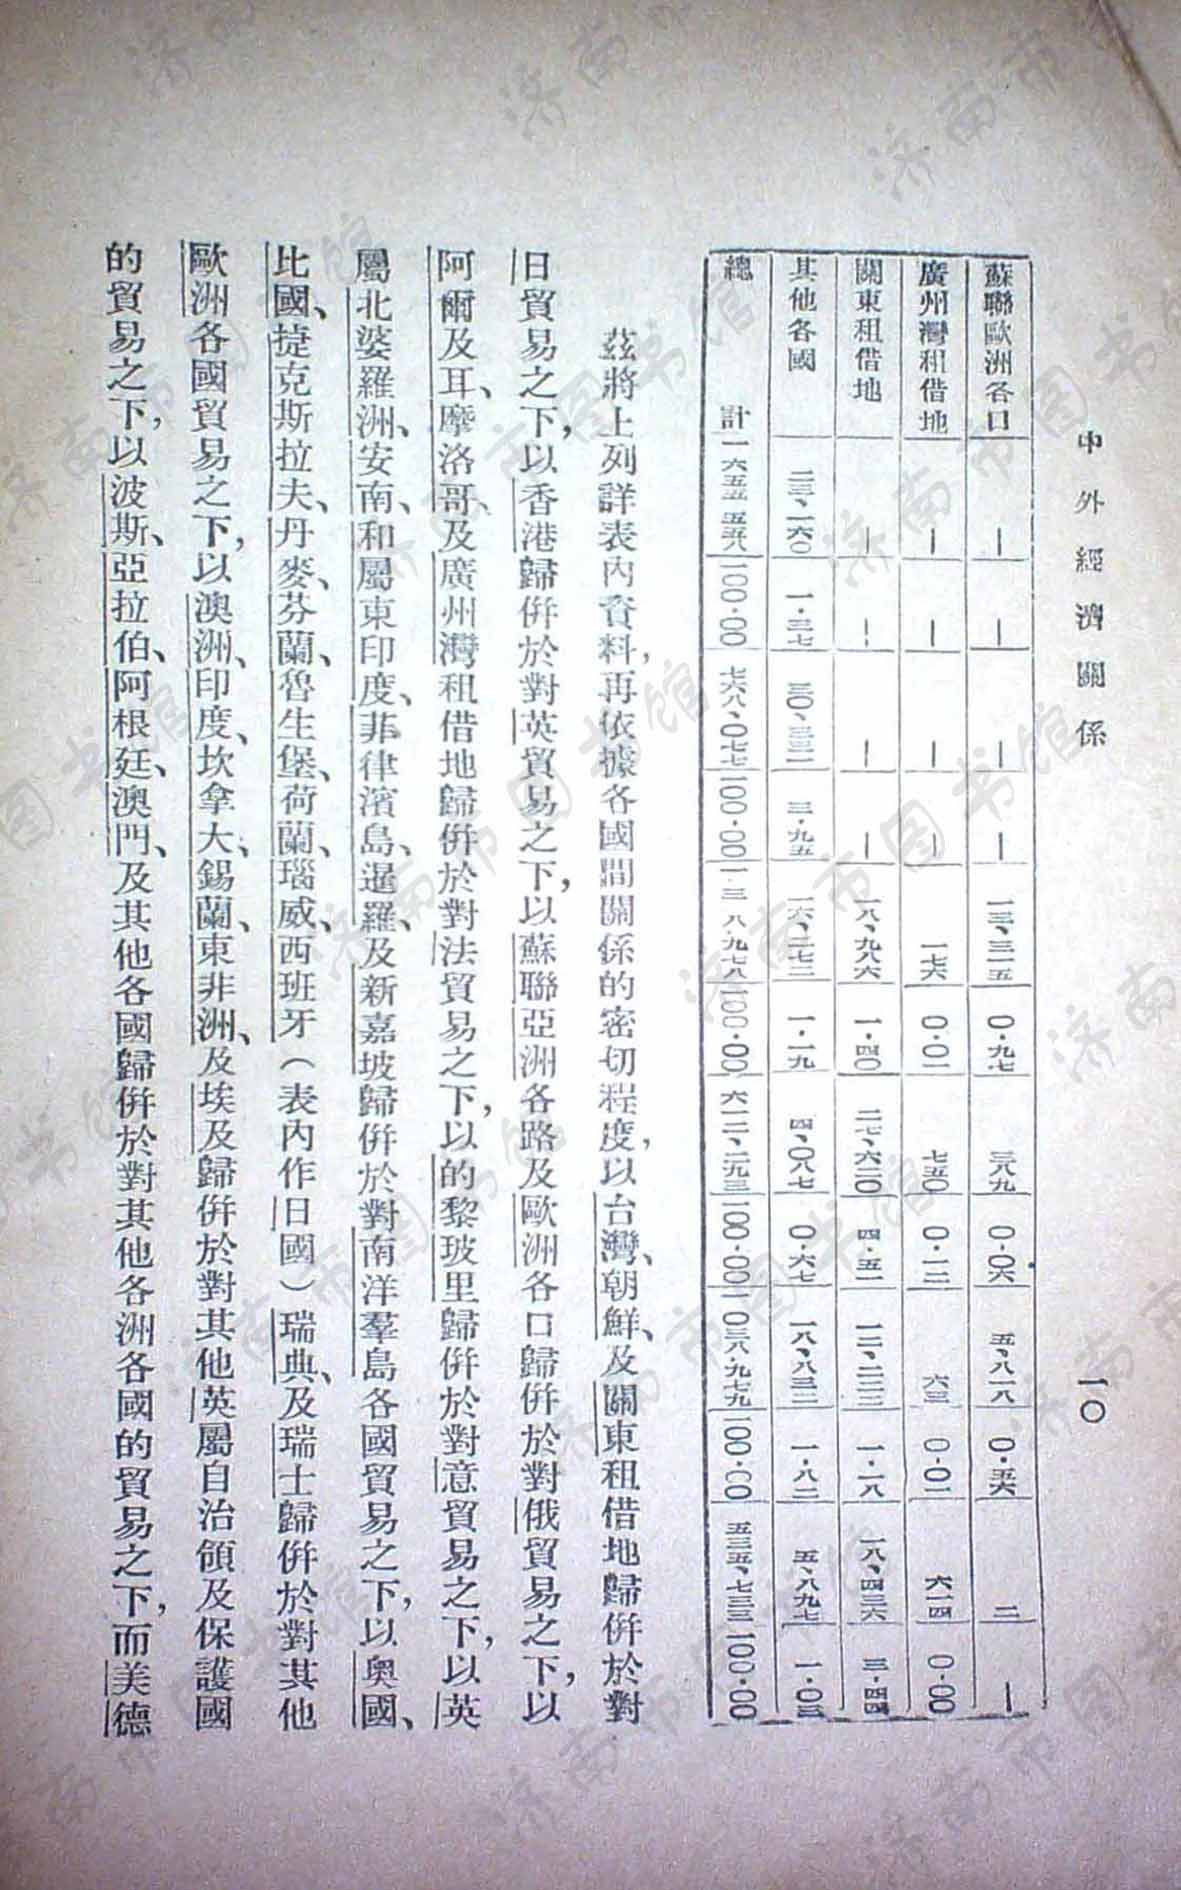 中外經濟關係
一〇
蘇聯歐洲各口 — — — — 一三、三一五 〇·九七 三八九 〇·〇六 五、八一八 〇·五六 二 —
廣州灣租借地 — — — — 一七六 〇·〇一 七五〇 〇·一二 六三 〇·〇一 六一四 〇·〇〇
關東租借地 — — — — 一八、九八六 一·四〇 二七、六二〇 四·五一 一二、二三二 一·一八 一八、四三六 三·四四
其他各國 二三、一六〇 一·三七 三〇、三三一 三·九五 一六、二七三 一·一九 四、〇八七 〇·六七 一八、八三二 一·八二 五、八九七 一·〇三
總計 一〇〇·〇〇 七六八、〇七七 一〇〇·〇〇 一〇〇·〇〇 六一二、二九三 一〇〇·〇〇 一〇三八、九七九 一〇〇·〇〇 五三五、七三三 一〇〇·〇〇
茲將上列詳表內資料，再依據各國間關係的密切程度，以台灣、朝鮮、及關東租借地歸併於對
日貿易之下，以香港歸併於對英貿易之下，以蘇聯亞洲各路及歐洲各口歸併於對俄貿易之下，以
阿爾及耳、摩洛哥、及廣州灣租借地歸併於對法貿易之下，以的黎玻里歸併於對意貿易之下，以英
屬北婆羅洲、安南、和屬東印度、菲律濱島、暹羅、及新嘉坡歸併於對南洋羣島各國貿易之下，以奧國、
比國、捷克斯拉夫、丹麥、芬蘭、魯生堡、荷蘭、瑙威、西班牙（表內作日國）瑞典、及瑞士歸併於對其他
歐洲各國貿易之下，以澳洲、印度、坎拿大、錫蘭、東非洲、及埃及歸併於對其他英屬自治領及保護國
的貿易之下，以波斯、亞拉伯、阿根廷、澳門、及其他各國歸併於對其他各洲各國的貿易之下，而美德
济南市图书馆